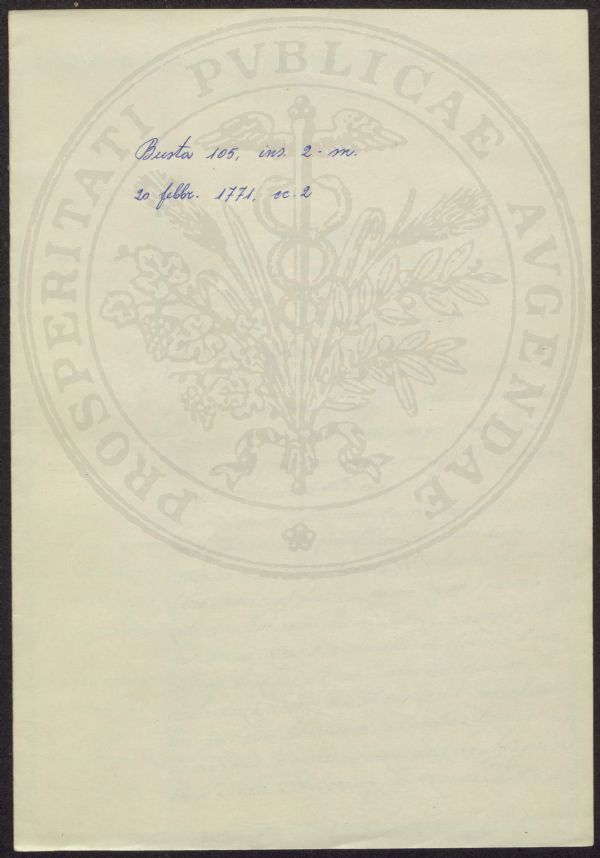 Busta 105, ins. 2 - m.
20 febbr. 1771, cc. 2
PROSPERITATI PVBLICAE AVGENDAE